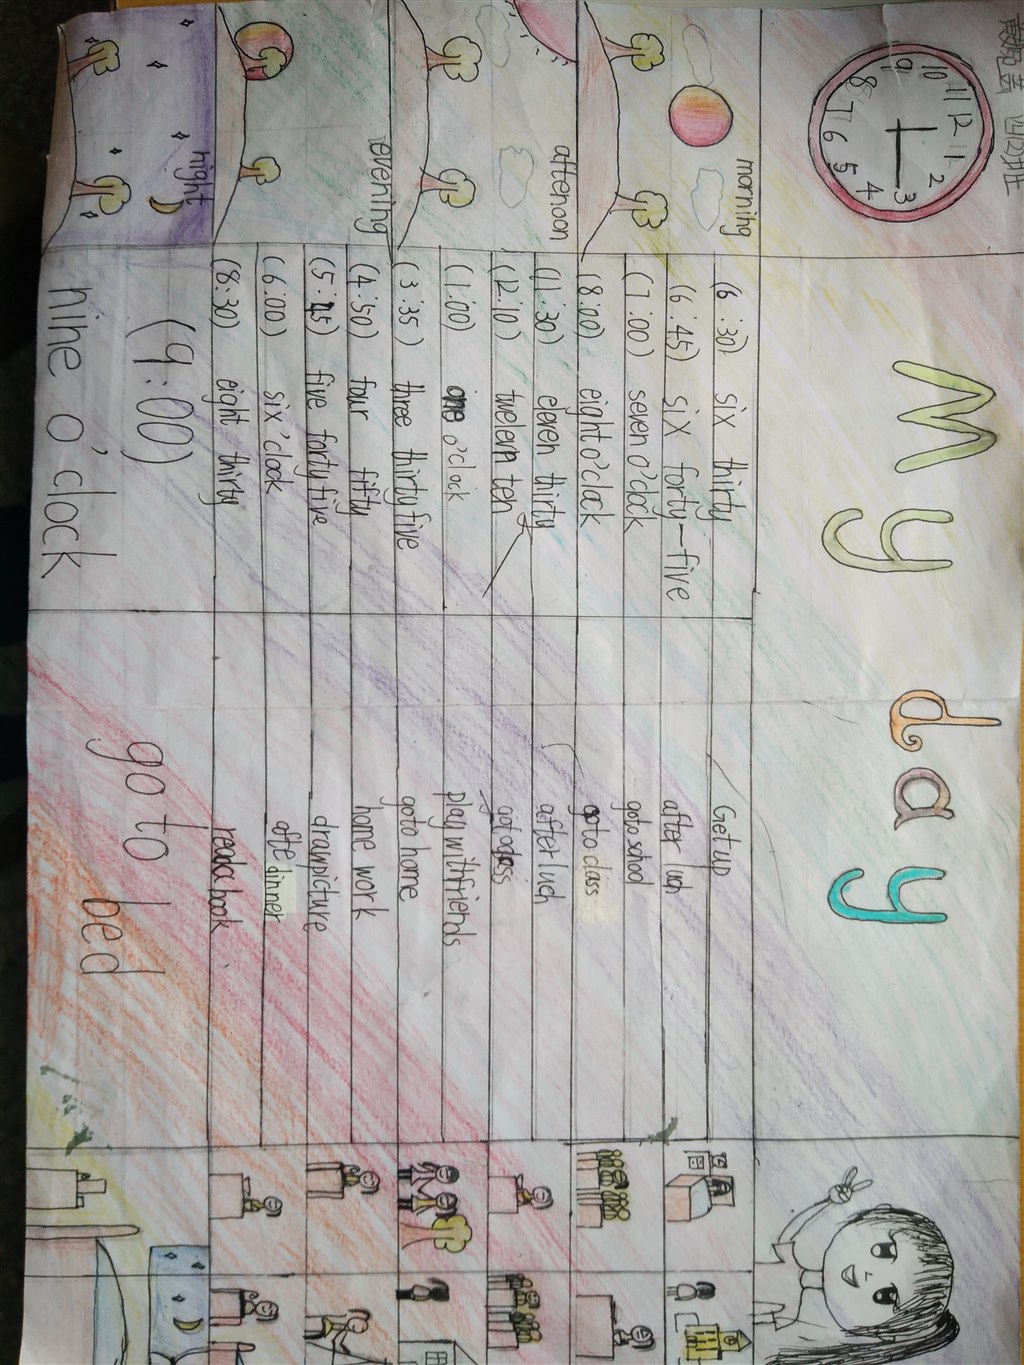 My day
11 12 1
10 2
9 3
8 4
7 6 5
morning
(6:30) six thirty Get up
(6:45) six forty-five after luch
(7:00) seven o'clock goto school
(8:00) eight o'clock goto class
aftenoon
(11:30) eleven thirty after luch
(12:10) twelern ten goto class
(1:00) one o'clock play with friends
(3:35) three thirty five goto home
evening
(4:50) four fifty home work
(5:45) five forty five draw picture
(6:00) six 'clock afte dinner
(8:30) eight thirty read a book
night
(9:00) go to bed
nine o'clock